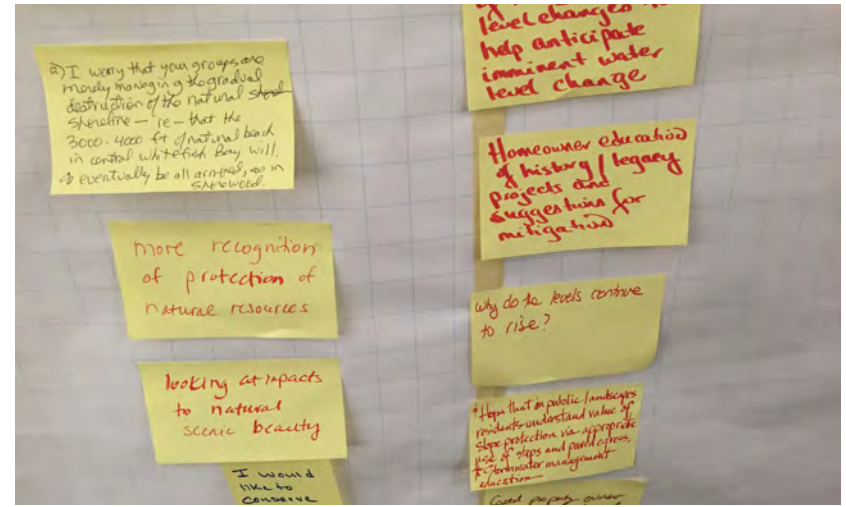 a) I worry that your groups are
merely managing the gradual
destruction of the natural
shoreline - re - that the
3000-4000 ft of natural beach
in central Whitefish Bay, will
eventually be all armored, as in
Shorewood.
more recognition
of protection of
natural resources
looking at impacts
to natural
scenic beauty
I would
like to
conserve
level changes to
help anticipate
imminent water
level change
Homeowner education
of history / legacy
projects and
suggestions for
mitigation
why do the levels continue
to rise?
* Hope that in public landscapes
residents understand value of
slope protection via appropriate
use of steps and paved egress.
* Stormwater management
education
Good property owner